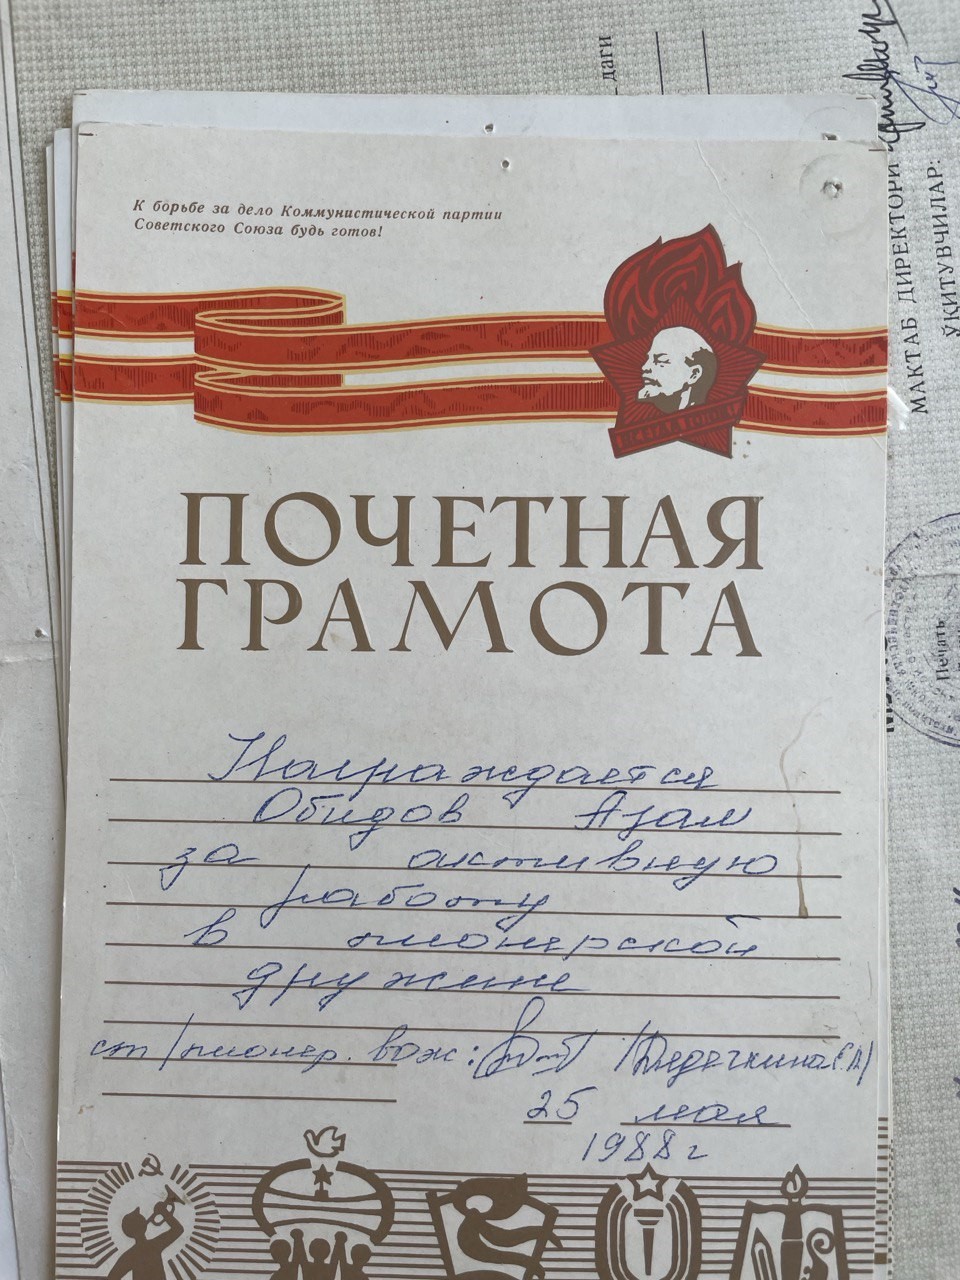 К борьбе за дело Коммунистической партии
Советского Союза будь готов!
ВСЕГДА ГОТОВ!
ПОЧЕТНАЯ
ГРАМОТА
Награждается
Обидов Азам
за активную
работу
в пионерской
дружине
ст/пионер. вож:
25 мая
1988 г
даги
МАКТАБ ДИРЕКТОРИ
ЎҚИТУВЧИЛАР:
Печать